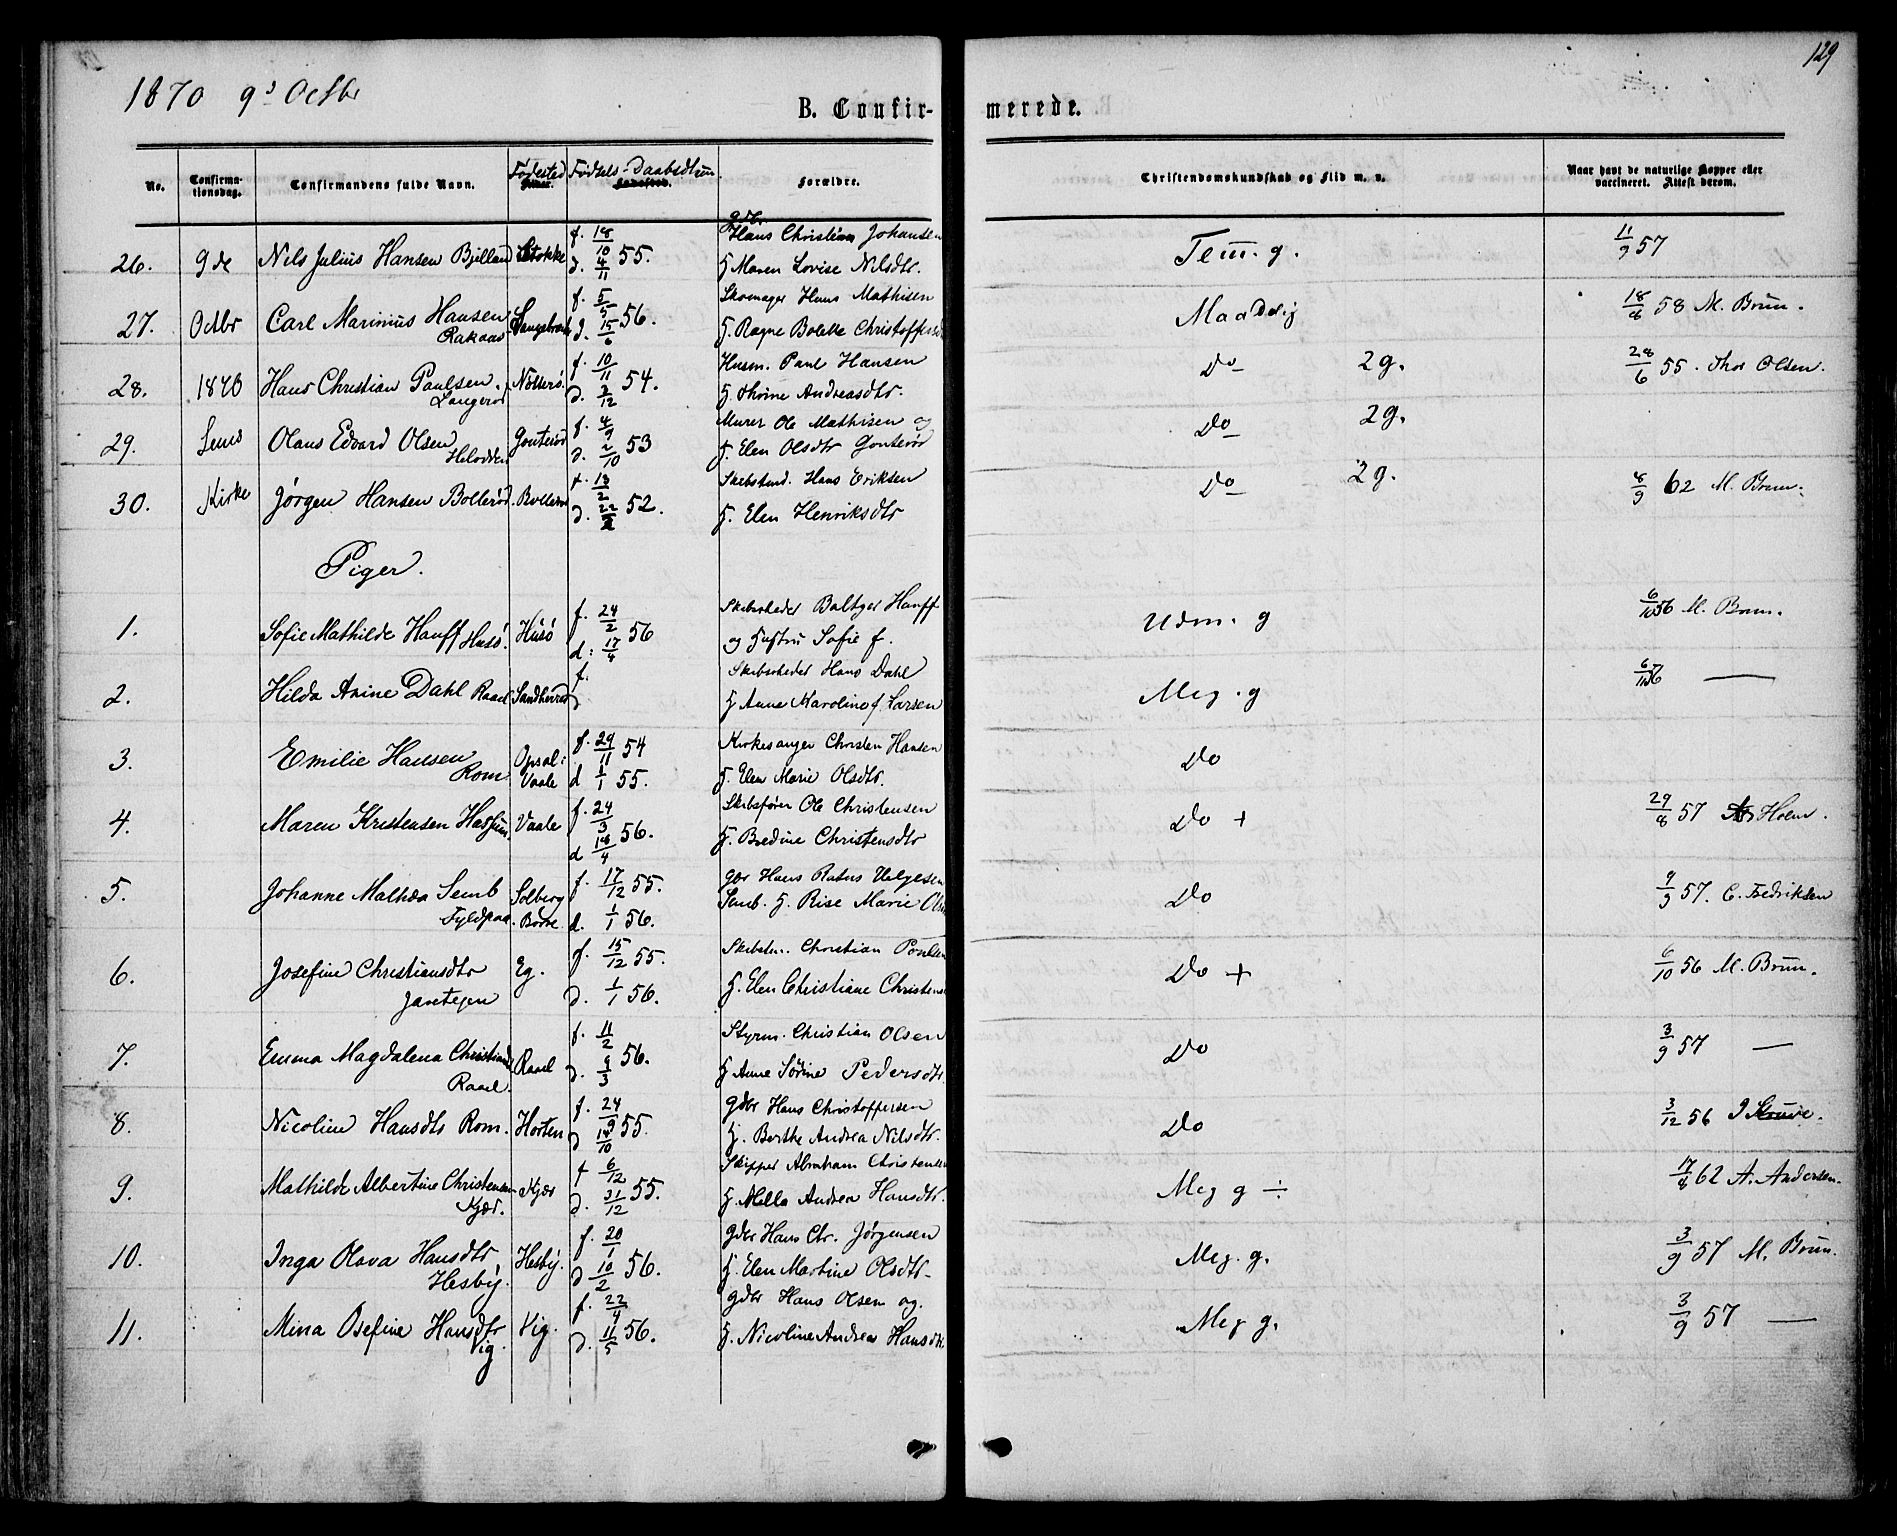 129
1870 9de Octbr
B. Confirmerede.
No. Confirmationsdag. Confirmandens fulde Navn. Fødested Fødsels- Daabsdtum Forældre. Christendomskundskab og Flid m. v. Naar havt de naturlige Kopper eller vaccineret. Attest derom.
26. 9de Nils Julius Hansen Bjelland Stokke f. 18/10 d. 4/11 55. gdbr. Hans Christian Johansen H. Maren Lovise Nilsdtr. Tem. g. 11/9 57
27. Octbr Carl Marinius Hansen Rakaas f. 5/5 d. 15/6 56. Skomager Hans Mathisen H. Ragne Bolette Christoffersd Maadelig 18/8 58 M. Brun.
28. 1870 Hans Christian Paulsen. Langerød Nøtterø. f. 10/11 d. 3/12 54. Husm. Paul Hansen H. Thrine Andreasdtr. Do 2 g. 28/6 55. Thor Olsen.
29. Sems Olaus Edvard Olsen Gonterød f. 4/9 d. 2/10 53 Murer Ole Mathisen og H. Elen Olsdtr Gonterød Do 2 g.
30. Kirke Jørgen Hansen Bollerød. Bollerød f. 13/2 d. 22/2 52. Hans Eriksen H. Elen Henriksdtr Do 2 g. 8/9 62 M. Brun.
Piger.
1. Sofie Mathilde Hauff Husø. Husø f. 24/2 d: 17/4 56 Skibsrheder Baltzer Hauff og Hustru Sofie f. Udm. g 6/10 56 M. Brun.
2. Hilda Anine Dahl Raael Sandherred f. d Skibsrheder Hans Dahl H Anne Karoline f. Larsen Meg. g 6/10 56 —
3. Emilie Hansen Rom Opsal: Vaale f. 29/11 54 d 1/1 55. Kirkesanger Christen Hansen H. Elen Marie Olsdtr. Do
4. Maren Kristensen Vaale f. 24/3 d 18/4 56. Skibsfører Ole Christensen H. Bredine Christensdtr Do + 29/8 57 Holm.
5. Johanne Mathea Semb Fyldpaa. Solberg Borre. f. 17/12 55. d. 1/1 56. gdr Hans Ratus Helgesen Semb. H. Rise Marie Ols Do 9/9 57. C. Fredriksen
6. Josefine Christiansdtr Jarstejen Eg. f. 15/12 55. d. 1/1 56. Christian Poulsen H. Elen Christiane Christens Do + 6/10 56 M. Brun.
7. Emma Magdalena Christiansd Raael. Raael f. 11/2 d. 9/3 56. Styrm. Christian Olsen H Anne Sørine Pedersdtr Do 3/9 57 —
8. Nicoline Hansdtr Rom. Horten f. 24/9 d 14/10 55. gdbr Hans Christoffersen H. Berthe Andrea Nilsdtr. Do 3/12 56 J Struve.
9. Mathilde Albertine Christensen Kjær. Kjær f 6/12 d. 31/12 55. Skipper Abraham Christensen H. Mella Andrea Hansdtr. Meg g ÷ 17/8 62 A. Andersen.
10. Inga Olava Hansdtr Hesby. Hesby. f. 20/1 d 10/2 56. gdbr Hans Chr. Jørgensen H. Elen Martine Olsdtr- Meg. g. 3/9 57 M. Brun.
11. Mina Osefine Hansdtr Vig. Vig. f. 22/4 d. 11/5 56. gdbr Hans Olsen og. H. Nicoline Andrea Hansdtr Meg g. 3/9 57 —